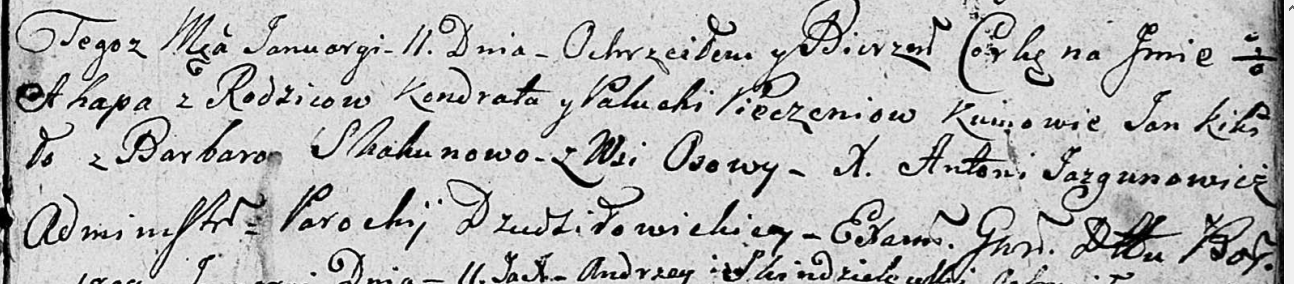 Tegoz Mca Januargi - 11. Dnia - Ochrzciłem y Bierzm Corkę na Jmie
Ahapa z Rodzicow Kondrata y Paluchi Pieczeniow Kumowie Jan Kikł
ło z Barbaro Skakunowo - z Wsi Osowy - X. Antoni Jazgunowicz
Adminstr = Parochij Dzudziłowickiey - Exam. Gnr. Dttu Bor.
Januargi Dnia - 11. Ja X. Andrzey